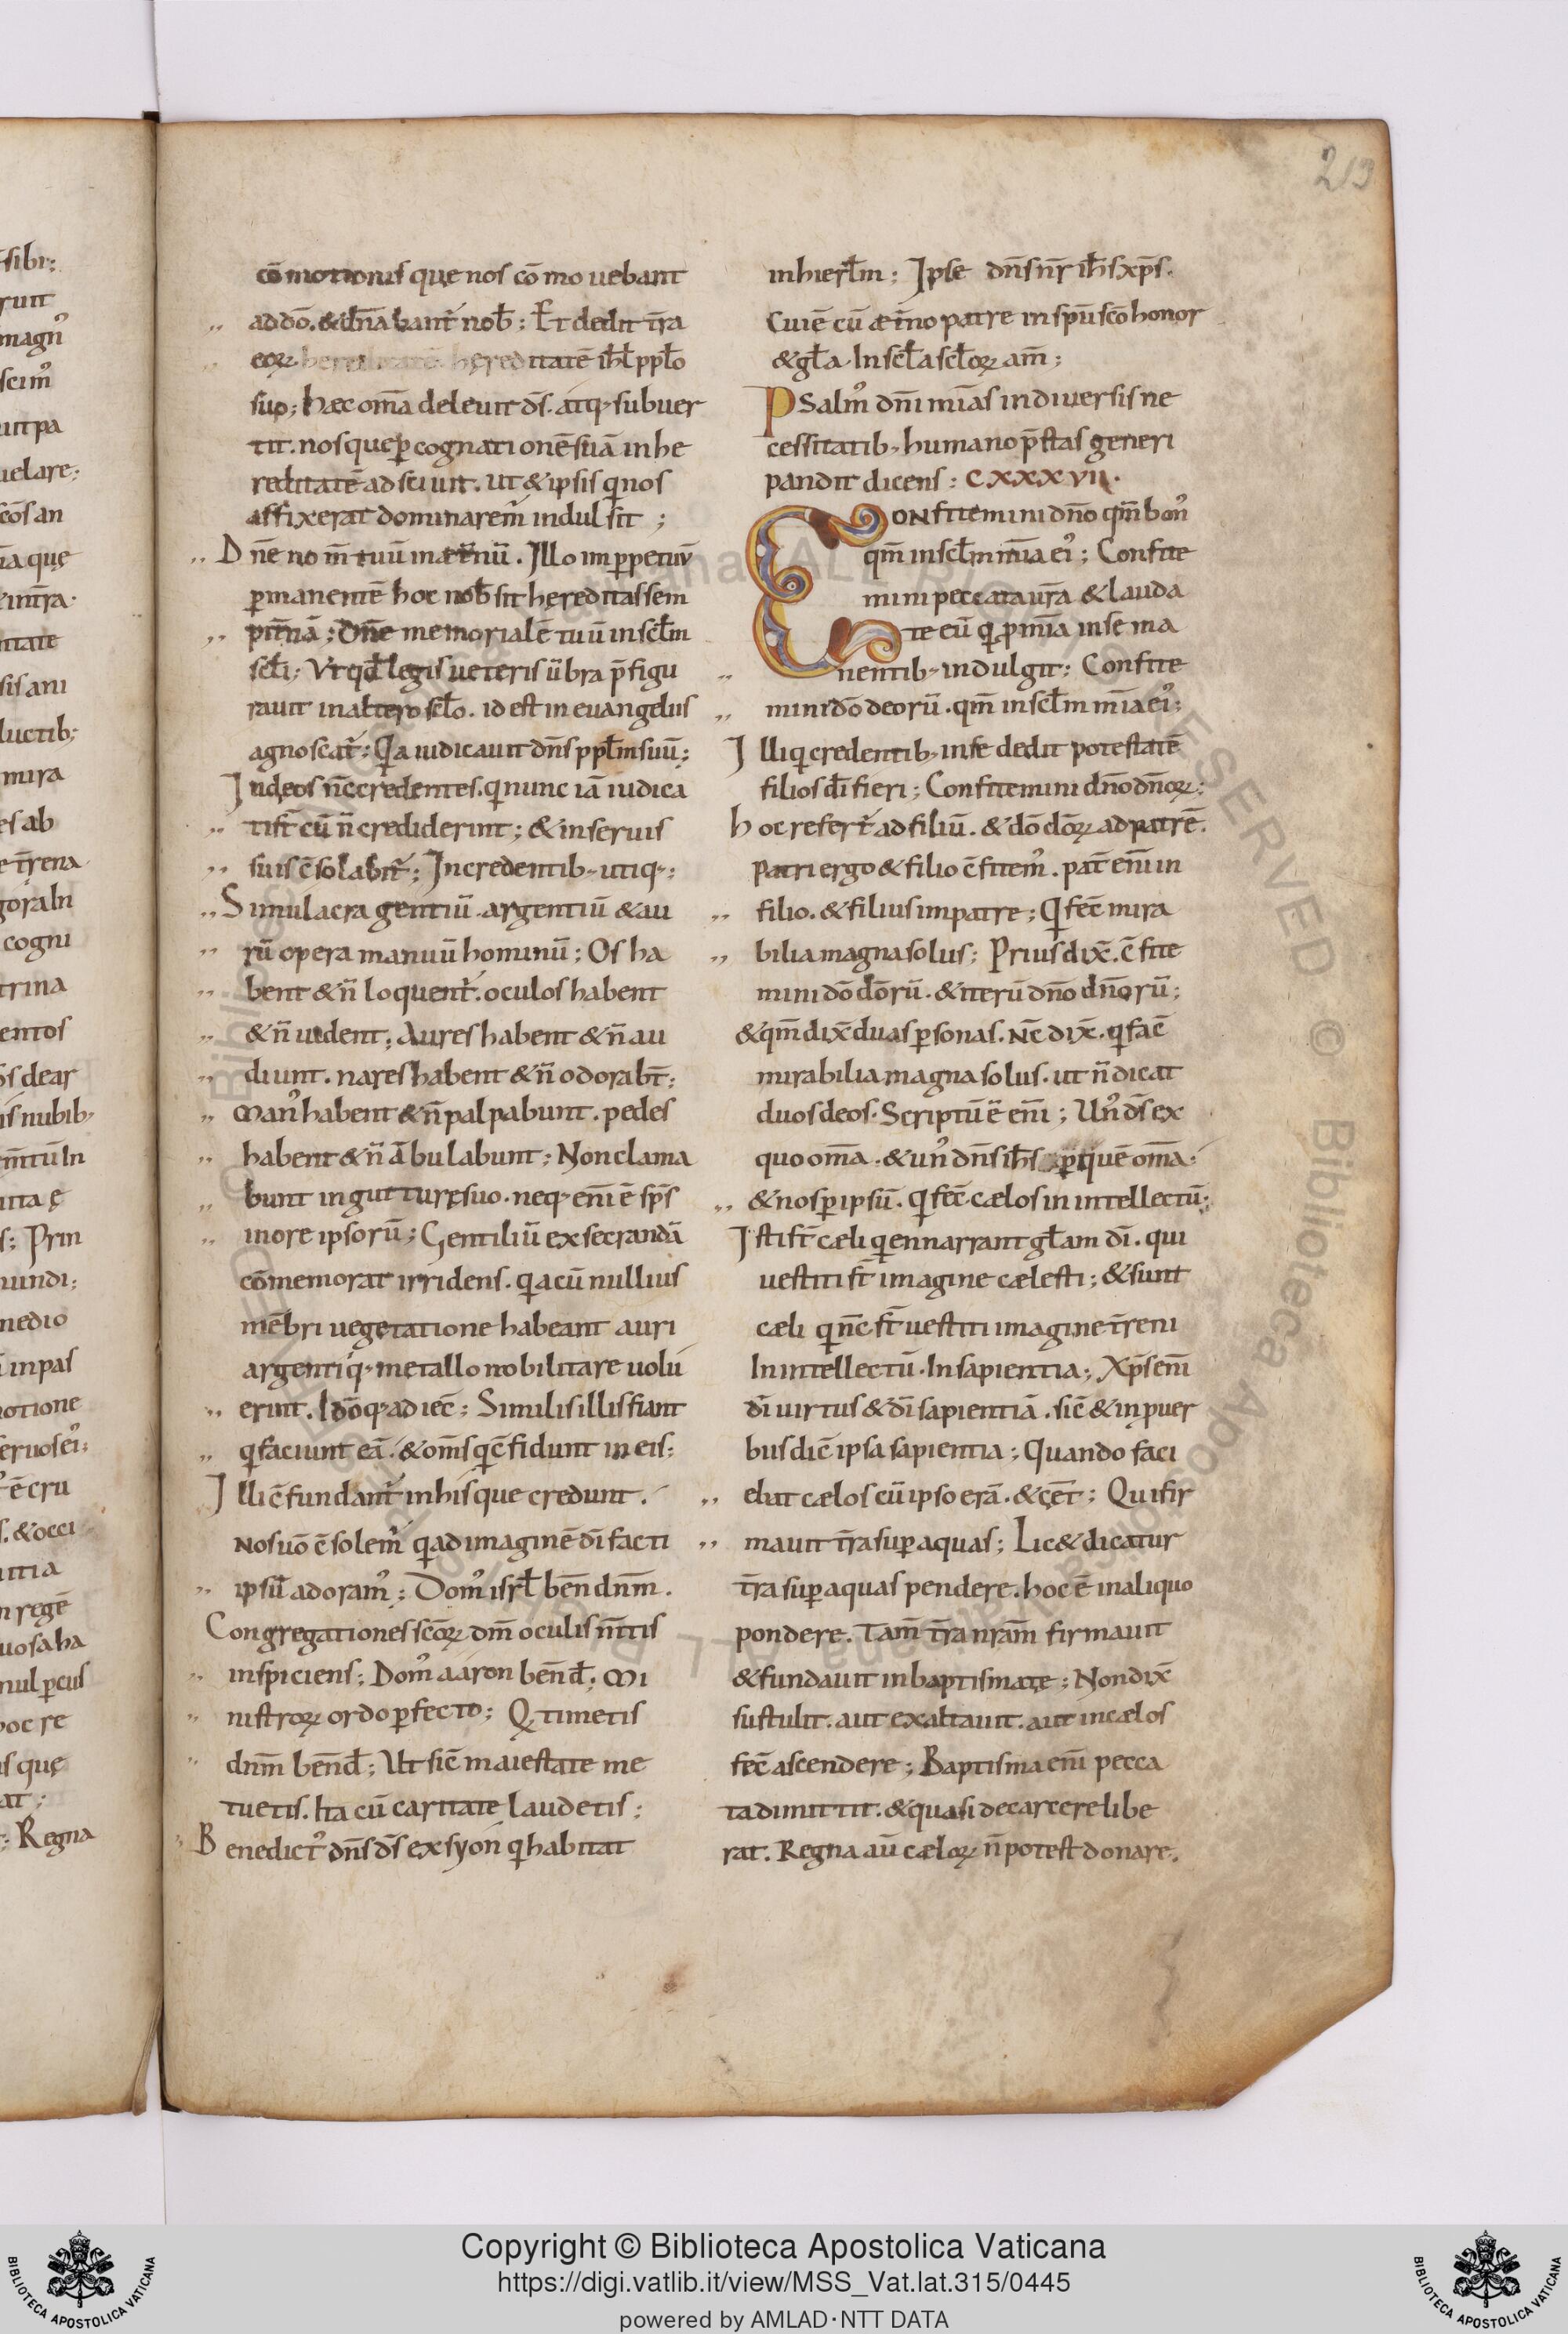 213
cōmotionis que nos cōmouebant
ad dō. & dn̄abant᷑ nob̄; Et dedit tr̄a
eoꝝ hereditatē hereditatē ih̄l ppl̄o
suo; hæc om̄a deleuit ds̄. atq; subuer
tit. nosque ꝑ cognationē suā in he
reditatē adsciuit. ut & ipsis qui nos
affixerat dominarem̄ indulsit ;
Dn̄e nom̄ tuū in æt̄nū. Illo imꝑpetuū
ꝑmanentē hoc nob̄ sit hęreditas sem
pit̄nā; Dn̄e memorialē tuū in scl̄m
scl̄i; Vt qd̄ legis ueteris ūbra p̄figu
rauit in altero scl̄o. id est in euangeliis
agnoscat᷑; Qia iudicauit dn̄s ppl̄m suū;
Iudeos n̄c credentes. qi nunc iā iudica
ti st̄ cū n̄ crediderint; & in seruis
suis c̄solabit᷑; In credentib; utiq;;
Simulacra gentiū argentiū & au
rū opera manuū hominū; Os ha
bent & n̄ loquent᷑. oculos habent
& n̄ uident; Aures habent & n̄ au
diunt. nares habent & n̄ odorabt̄;
Man᷒ habent & n̄ palpabunt. pedes
habent & n̄ ābulabunt; Non clama
bunt in gutture suo. neq; eni̅ ē sps̄
in ore ipsorū; Gentiliū exsecrandā
cōmemorat irridens. qia cū nullius
mēbri uegetatione habeant auri
argentiq; metallo nobilitare uolu
erint. Idōq; adiec̄; Similis illis fiant
qi faciunt ea. & om̄s qi c̄fidunt in eis;
Illi c̄fundant᷑ in his que credunt.
Nos uō c̄solem᷒ qi ad imaginē dī facti
ipsū adoram᷒; Dom᷒ isrl̄ ben̄ dnm̄.
Congregationes scōꝝ dm̄ oculis mtīs
inspiciens; Dom᷒ aaron ben̄d; Mi
nistroꝝ ordo ꝑfecto; Qi timetis
dnm̄ ben̄d; Ut sic̄ maiestate me
tuetis. Ita cū caritate laudetis;
Benedict᷒ dn̄s ds̄ ex syon qi habitat
in hierl̄m; Ipse dn̄s nr̄ ih̄s xp̄s.
Cui ē cū æt̄no patre in spū scō honor
& gl̄a. In scl̄a scl̄oꝝ am̄;
Psalm᷒ dn̄i mīas in diuersis ne
cessitatib; humano p̄stas generi
pandit dicens; CXXXVII.
Confitemini dn̄o qm̄ bon᷒
qm̄ in scl̄m mīa ei᷒; Confite
mini peccata ur̄a & lauda
te eū qi ꝑ mīa in se ma
nentib; indulgit; Confite
mini dō deorū. qm̄ in scl̄m mīa ei᷒;
Illi qi credentib; in se dedit potestatē
filios dī fieri; Confitemini dn̄o dn̄oꝝ;
hoc refert᷑ ad filiū. & dō dōꝝ ad patrē.
Patri ergo & filio c̄fitem᷒. pat̄ eni̅ in
filio. & filius in patre; Qi fec̄ mira
bilia magna solus; Prius dix̄. c̄fite
mini dō dōrū. & iterū dn̄o dn̄orū;
& qm̄ dix̄ duas ꝑsonas. Nc̄ dix̄. qi fac̄
mirabilia magna solus. ut n̄ dicat
duos deos. Scriptū ē eni̅; Un᷒ ds̄ ex
quo om̄a. & un᷒ dn̄s ih̄s ꝑ quē om̄a.
& nos ꝑ ipsū. Qi fec̄ cælos in intellectū;
Isti st̄ cæli qi ennarrant gl̄am dī. qui
uestiti st̄ imagine cælesti; & sunt
cæli qi nc̄ st̄ uestiti imagine tr̄eni
In intellectū. In sapientia; Xp̄s eni̅
dī uirtus & dī sapientiā. sic̄ & in puer
bus dic̄ ipsa sapientia; Quando faci
ebat cælos cū ipso erā. & cęt̄; Qui fir
mauit tr̄a suꝑ aquas; Lic& dicatur
tr̄a suꝑ aquas pendere. hoc ē in aliquo
pondere. Tam̄ tr̄a nrām firmauit
& fundauit in baptismate; Non dix̄
sustulit. aut exaltauit. aut in cælos
fec̄ ascendere; Baptisma eni̅ pecca
ta dimittit. & quasi de carcere libe
rat. Regna aū cæloꝝ n̄ potest donare.
Copyright © Biblioteca Apostolica Vaticana
https://digi.vatlib.it/view/MSS_Vat.lat.315/0445
powered by AMLAD·NTT DATA